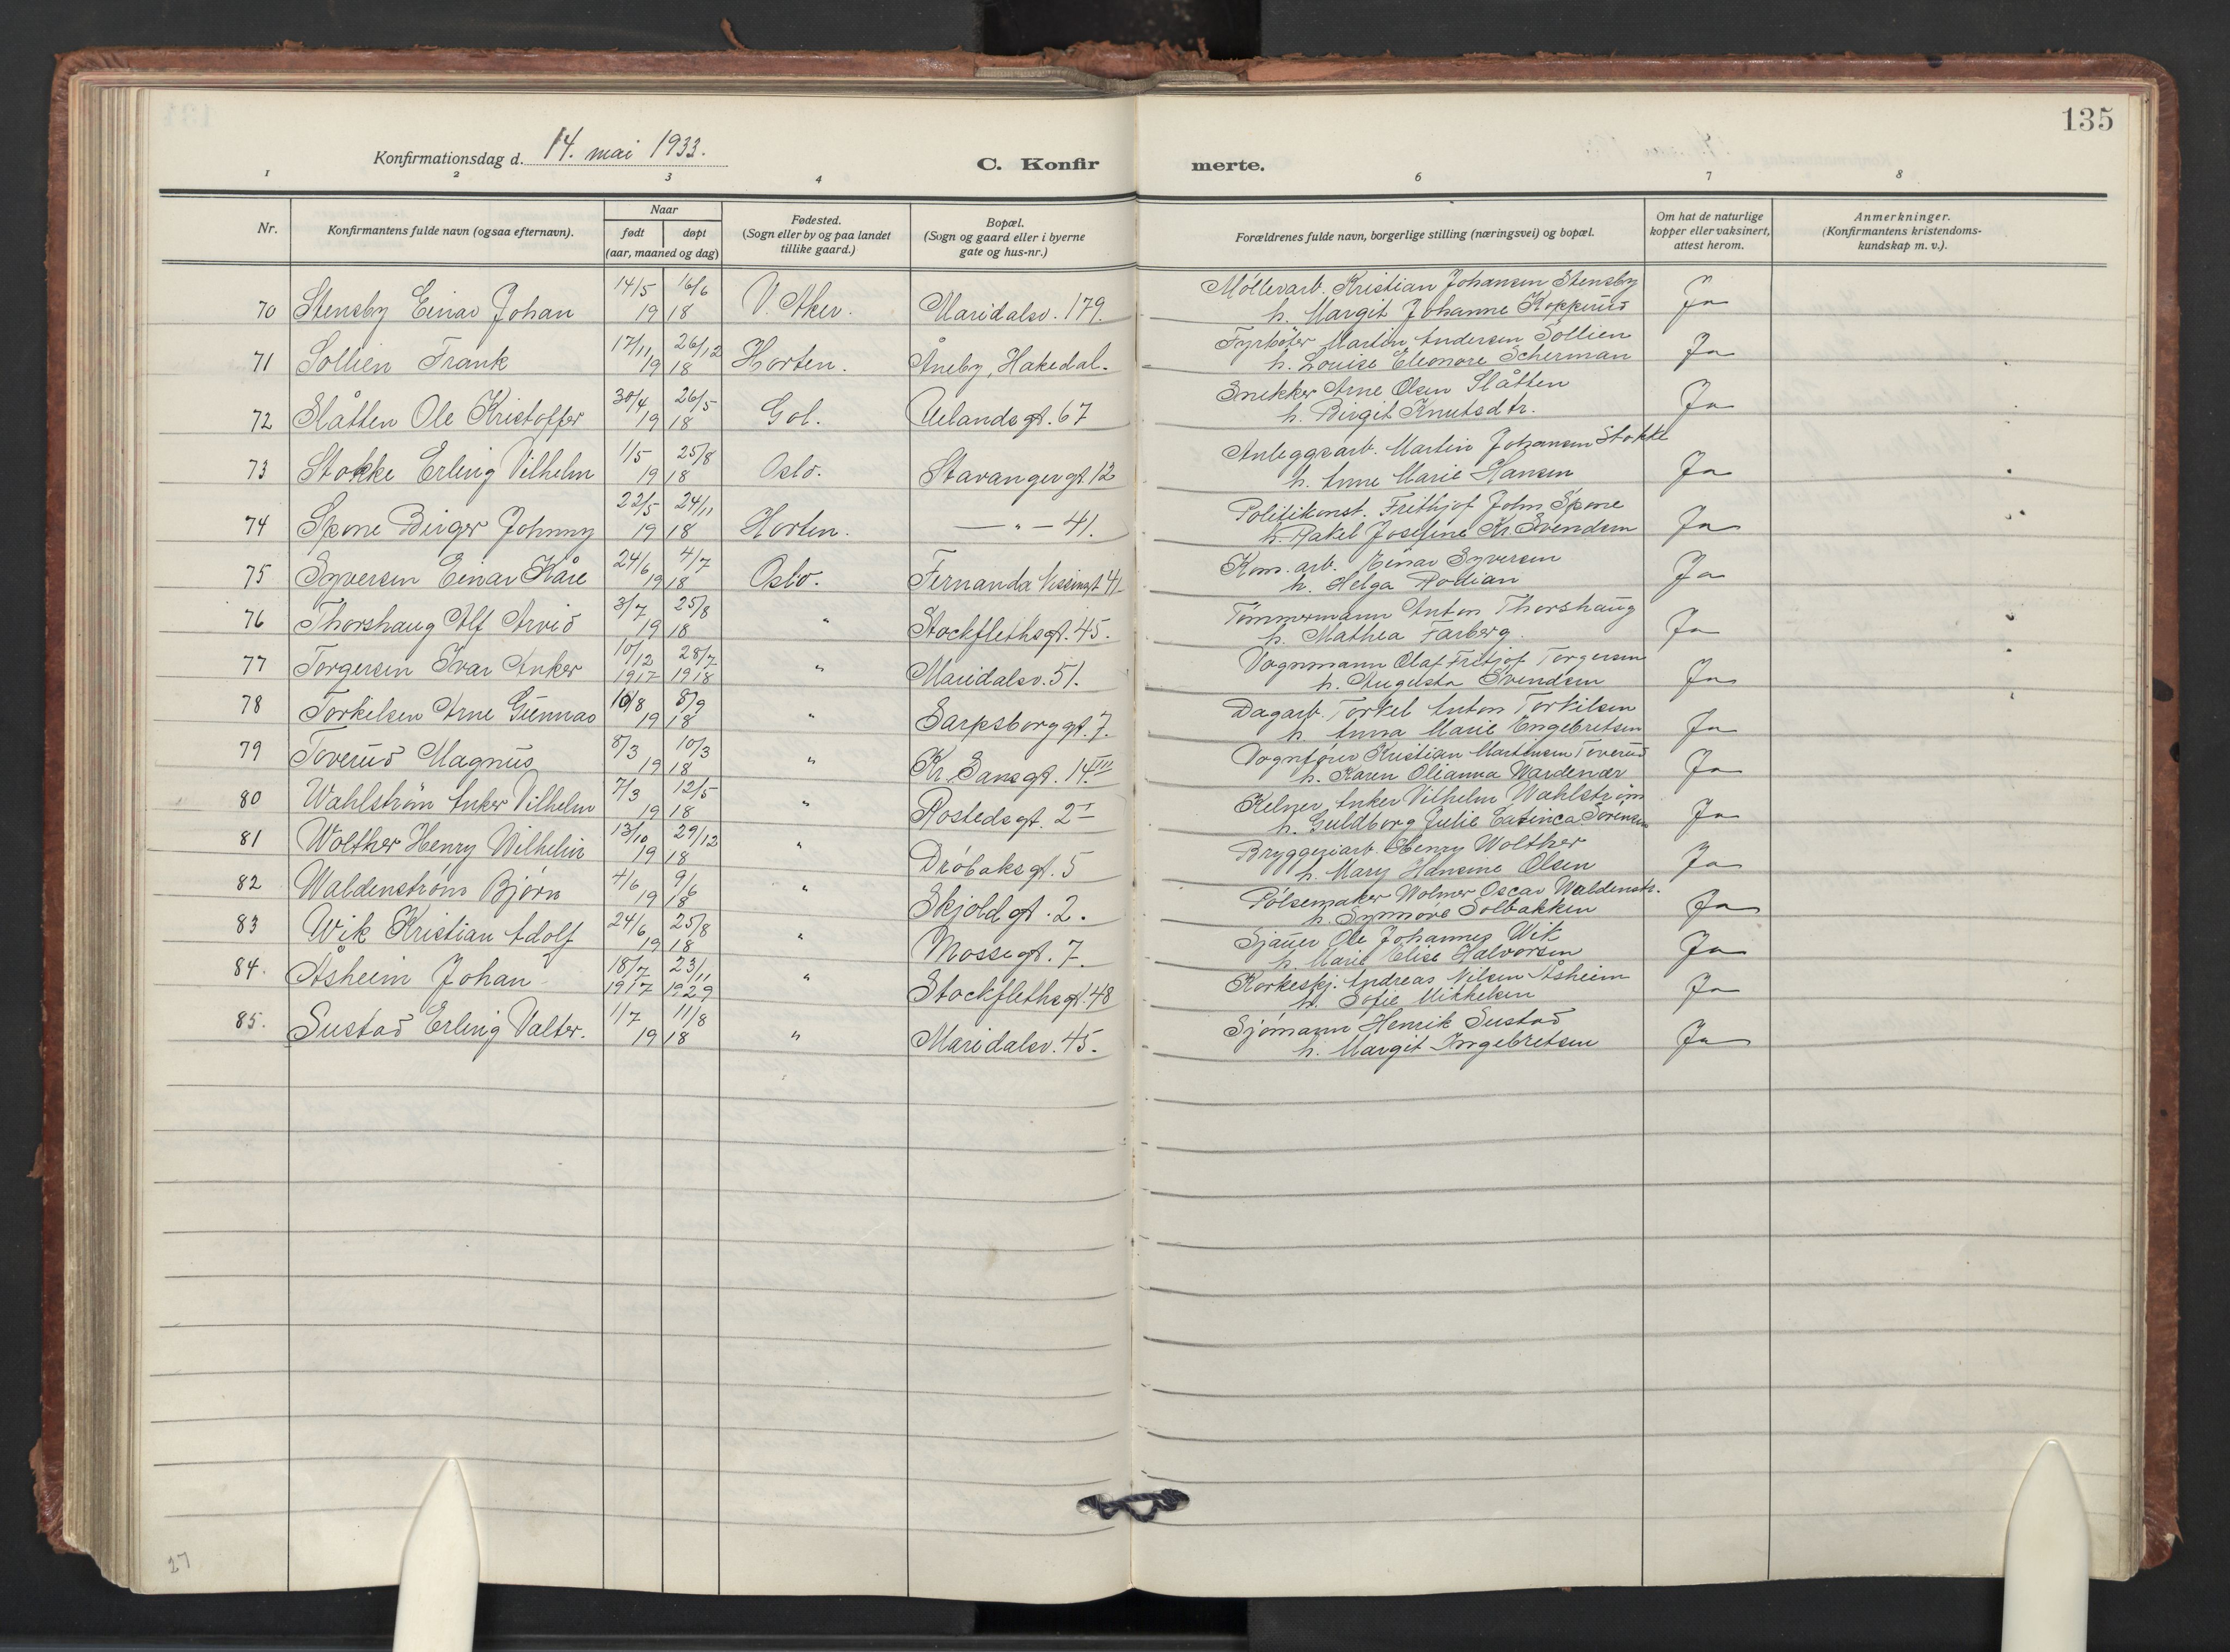 135
Konfirmationsdag d. 14. mai 1933.
C. Konfir merte.
1 2 3 4 6 7 8
Nr.
Konfirmantens fulde navn (ogsaa efternavn).
Naar
født døpt
(aar, maaned og dag)
Fødested.
(Sogn eller by og paa landet
tillike gaard.)
Bopæl.
(Sogn og gaard eller i byerne
gate og hus-nr.)
Forældrenes fulde navn, borgerlige stilling (næringsvei) og bopæl.
Om hat de naturlige
kopper eller vaksinert,
attest herom.
Anmerkninger.
(Konfirmantens kristendoms-
kundskap m. v.).
14/5 16/6 Møllerarb. Kristian Johansen Stensby
70 Stensby Einar Johan 19 18 V. Aker. Maridalsv. 179. h. Margit Johanne Kopperud Ja
17/11 26/12 Fyrbøter Martin Andersen Sollien
71 Sollien Frank 19 18 Horten. Åneby, Hakedal. h. Louise Eleonore Scherman Ja
30/4 26/5 Snekker Arne Olsen Slåtten
72 Slåtten Ole Kristoffer 19 18 Gol. Uelandsgt. 67 h. Birgit Knutsdtr. Ja
1/5 25/8 Anleggsarb. Martin Johansen Stokke
73 Stokke Erling Vilhelm 19 18 Oslo. Stavangergt 12 h. Anne Marie Hansen Ja
22/5 24/11 Politikonst. Frithjof John Spone
74 Spone Birger Johnny 19 18 Horten. — " — 41. h. Rakel Josefine Kr. Svendsen Ja
24/6 4/7 Kom. arb. Einar Syversen
75 Syversen Einar Kåre 19 18 Oslo. Fernanda Nissengt 4 h. Helga Rodian Ja
3/7 25/8 Tømmermann Anton Thorshaug
76 Thorshaug Alf Arvid 19 18 " Stockflethsgt. 45. h. Mathea Farberg. Ja
10/12 28/7 Vognmann Olaf Fritjof Torgersen
77 Torgersen Ivar Anker 1917 1918 " Maridalsv. 51. h. Augusta Svendsen Ja
10/8 8/9 Dagarb. Torkel Anton Torkilsen
78 Torkelsen Arne Gunnar 19 18 " Sarpsborggt. 7. h. Anna Marie Engebretsen Ja
8/3 10/3 Vognfører Kristian Martinsen Toverud
79 Toverud Magnus 19 18 " Kr. Sansgt. 14 III h. Karen Olianna Wardenær Ja
7/3 12/5 Kelner Anker Vilhelm Wahlstrøm
80 Wahlstrøm Anker Vilhelm 19 18 " Rostedsgt. 2 I h. Guldborg Julie Catinca Sørensen Ja
13/10 29/12 Bryggeriarb. Henry Wolther
81 Wolther Henry Wilhelm 19 18 " Drøbaksgt. 5 h. Mary Hansine Olsen Ja
4/6 9/6 Pølsemaker Wolmer Oscar Waldenstr.
82 Waldenstrøm Bjørn 19 18 " Skjoldgt. 2. h. Synnøve Solbakken Ja
24/6 25/8 Sjauer Ole Johannes Wik
83 Wik Kristian Adolf 19 18 " Mossegt. 7. h. Marie Elise Halvorsen Ja
18/7 23/11 Korkeskj. Andreas Nilsen Åsheim
84. Åsheim Johan 1917 1929 " Stockflethsgt. 48 h. Sofie Mikkelsen Ja
1/7 11/8 Sjømann Henrik Sustad
85. Sustad Erling Valter. 19 18 " Maridalsv. 45. h. Margit Ingebretsen Ja
27